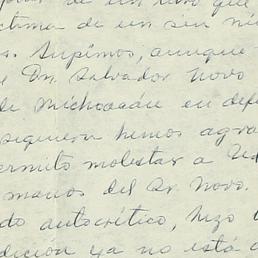 de un libro que
ctima de un sin nú
s. Supimos, aunque
e Dn. Salvador Novo
de Michoacán en defe
siquiera hemos agra
ermito molestar a Ud
manos del Sr. Novo.
do autocrítico, hizo
dición ya no está a